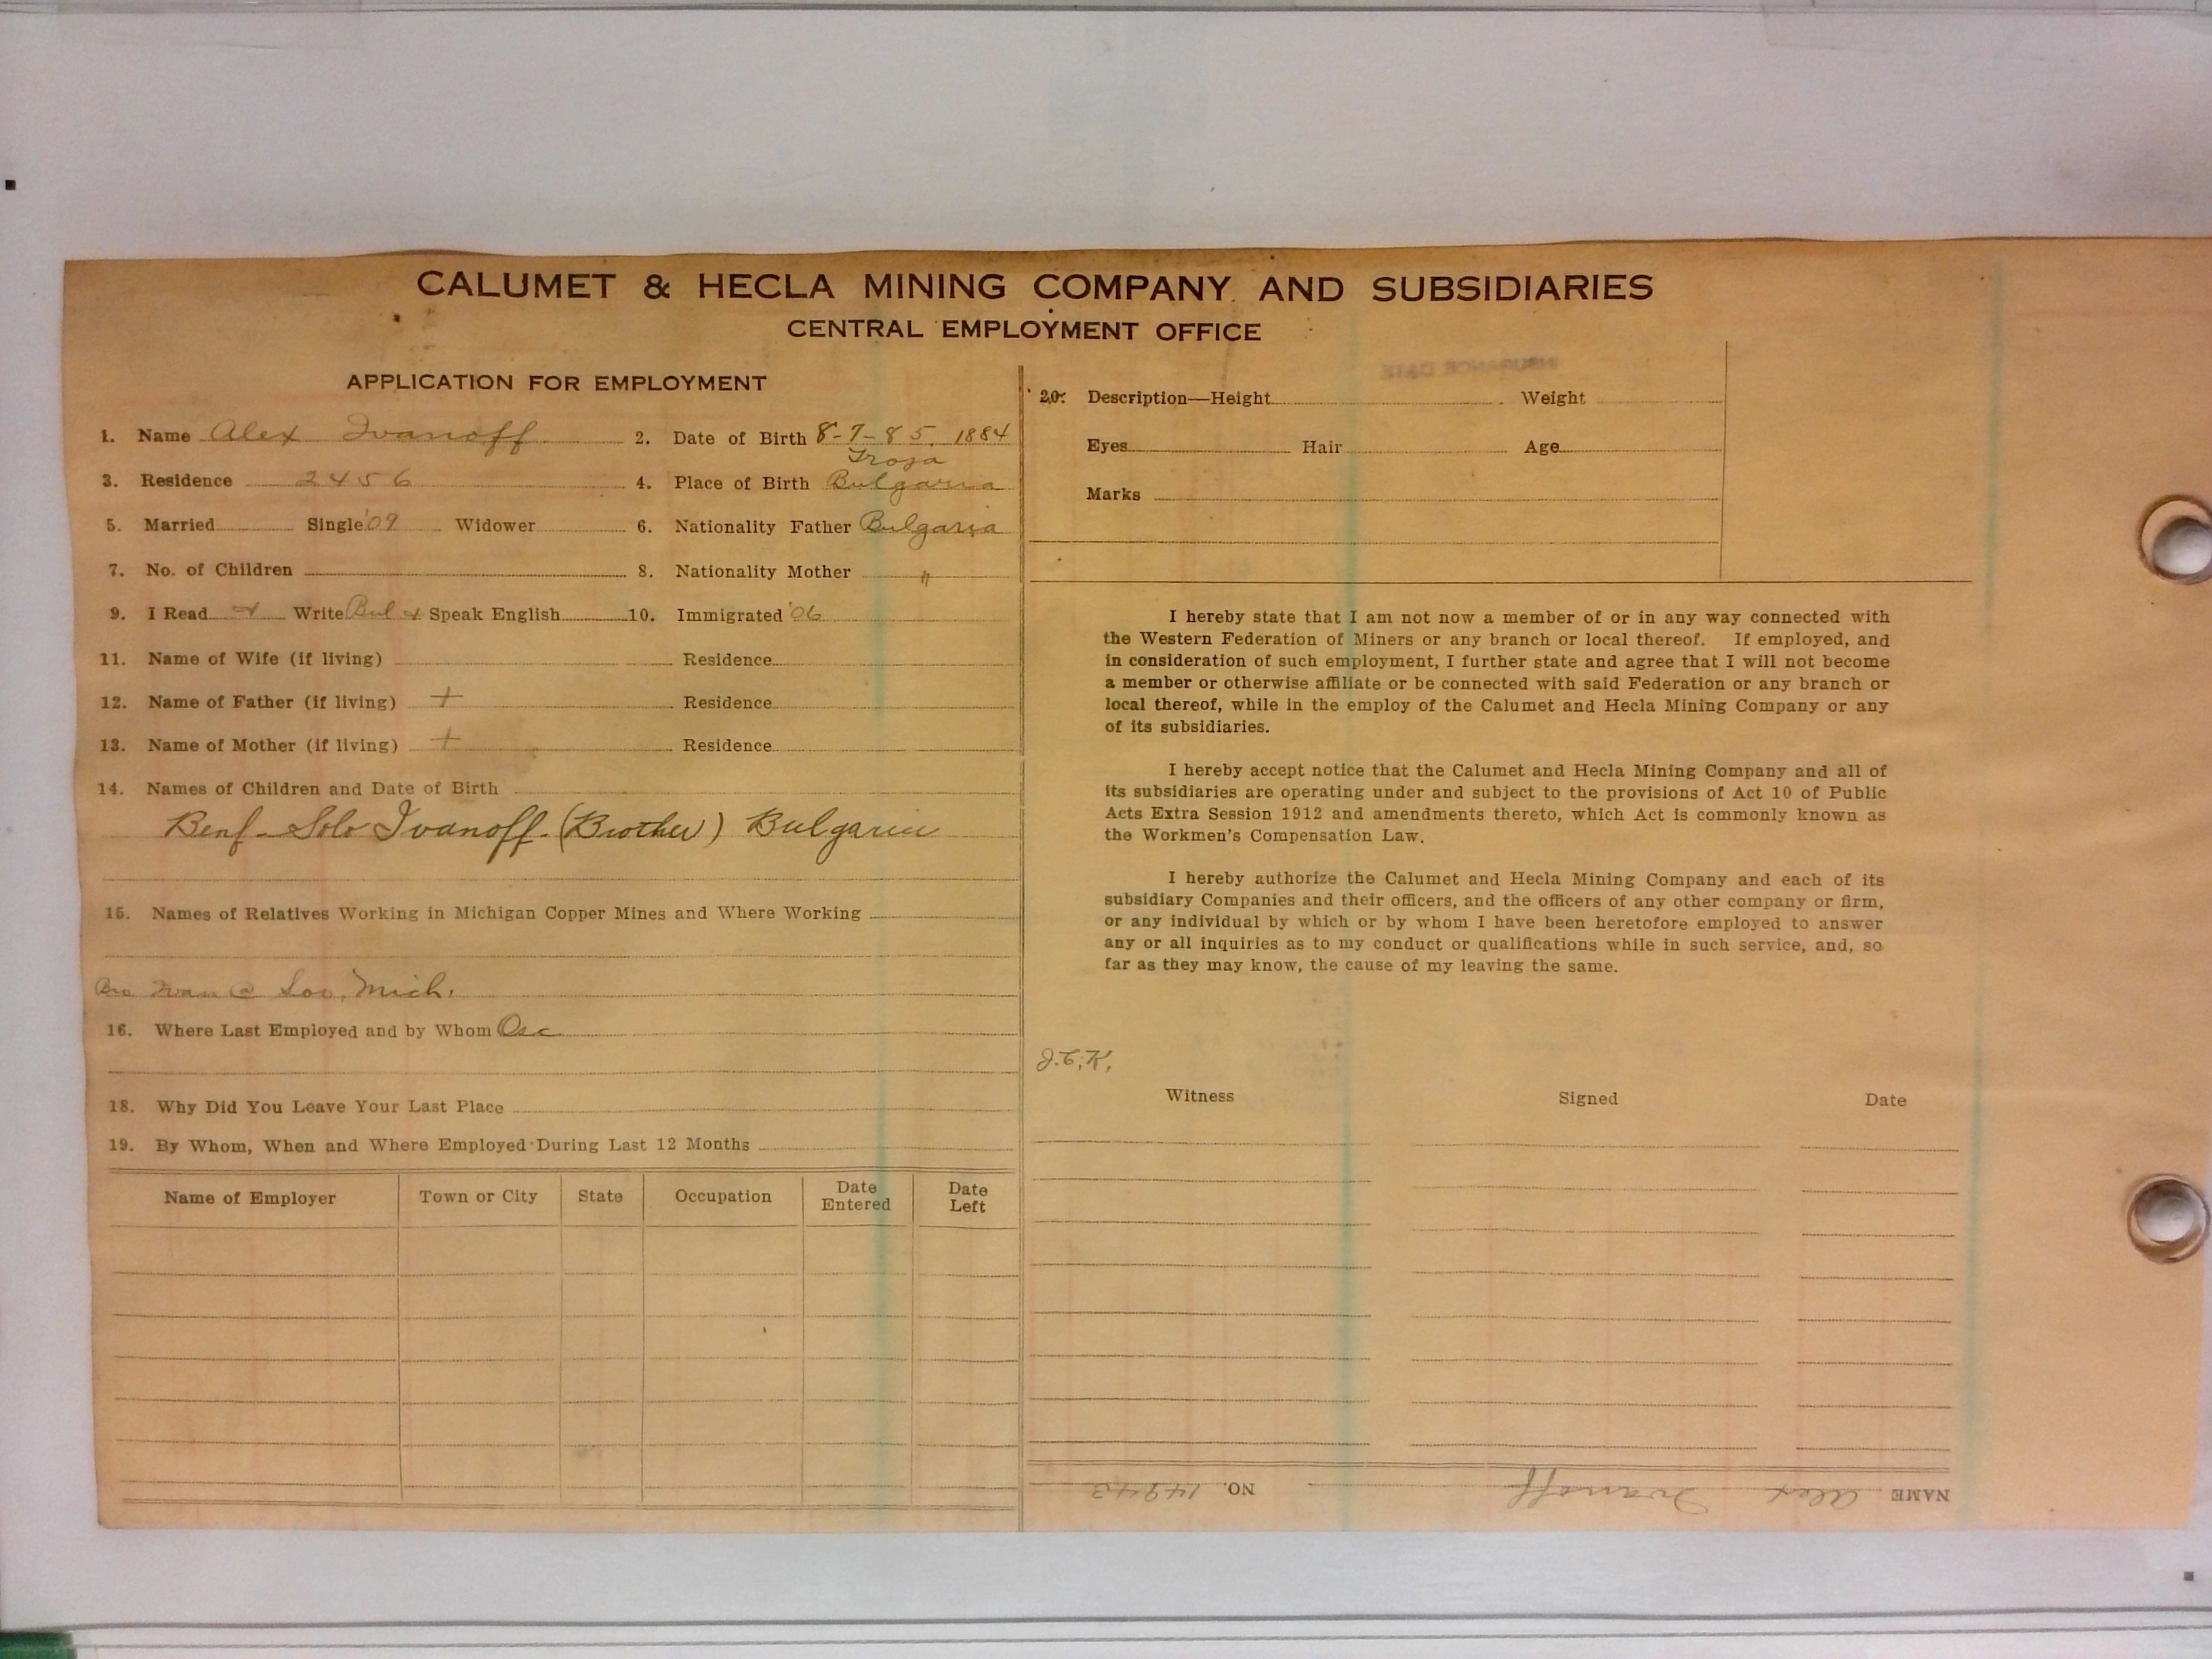 CALUMET & HECLA MINING COMPANY AND SUBSIDIARIES
CENTRAL EMPLOYMENT OFFICE
APPLICATION FOR EMPLOYMENT
1. Name Alex Ivanoff 2. Date of Birth 8-7-85. 1884
3. Residence 2456 4. Place of Birth Bulgaria
5. Married Single '09 Widower 6. Nationality Father Bulgaria
7. No. of Children 8. Nationality Mother "
9. I Read & Write Bul & Speak English 10. Immigrated '06
11. Name of Wife (if living) Residence
12. Name of Father (if living) + Residence
13. Name of Mother (if living) + Residence
14. Names of Children and Date of Birth
Benf- Solo Ivanoff- (Brother) Bulgaria
15. Names of Relatives Working in Michigan Copper Mines and Where Working
Bro Ivan @ Soo, Mich.
16. Where Last Employed and by Whom Osc
18. Why Did You Leave Your Last Place
19. By Whom, When and Where Employed During Last 12 Months
Name of Employer Town or City State Occupation Date Entered Date Left
INSURANCE DATE
20. Description—Height Weight
Eyes Hair Age
Marks
I hereby state that I am not now a member of or in any way connected with
the Western Federation of Miners or any branch or local thereof. If employed, and
in consideration of such employment, I further state and agree that I will not become
a member or otherwise affiliate or be connected with said Federation or any branch or
local thereof, while in the employ of the Calumet and Hecla Mining Company or any
of its subsidiaries.
I hereby accept notice that the Calumet and Hecla Mining Company and all of
its subsidiaries are operating under and subject to the provisions of Act 10 of Public
Acts Extra Session 1912 and amendments thereto, which Act is commonly known as
the Workmen's Compensation Law.
I hereby authorize the Calumet and Hecla Mining Company and each of its
subsidiary Companies and their officers, and the officers of any other company or firm,
or any individual by which or by whom I have been heretofore employed to answer
any or all inquiries as to my conduct or qualifications while in such service, and, so
far as they may know, the cause of my leaving the same.
J.C.K.
Witness Signed Date
NAME Alex Ivanoff NO. 14943